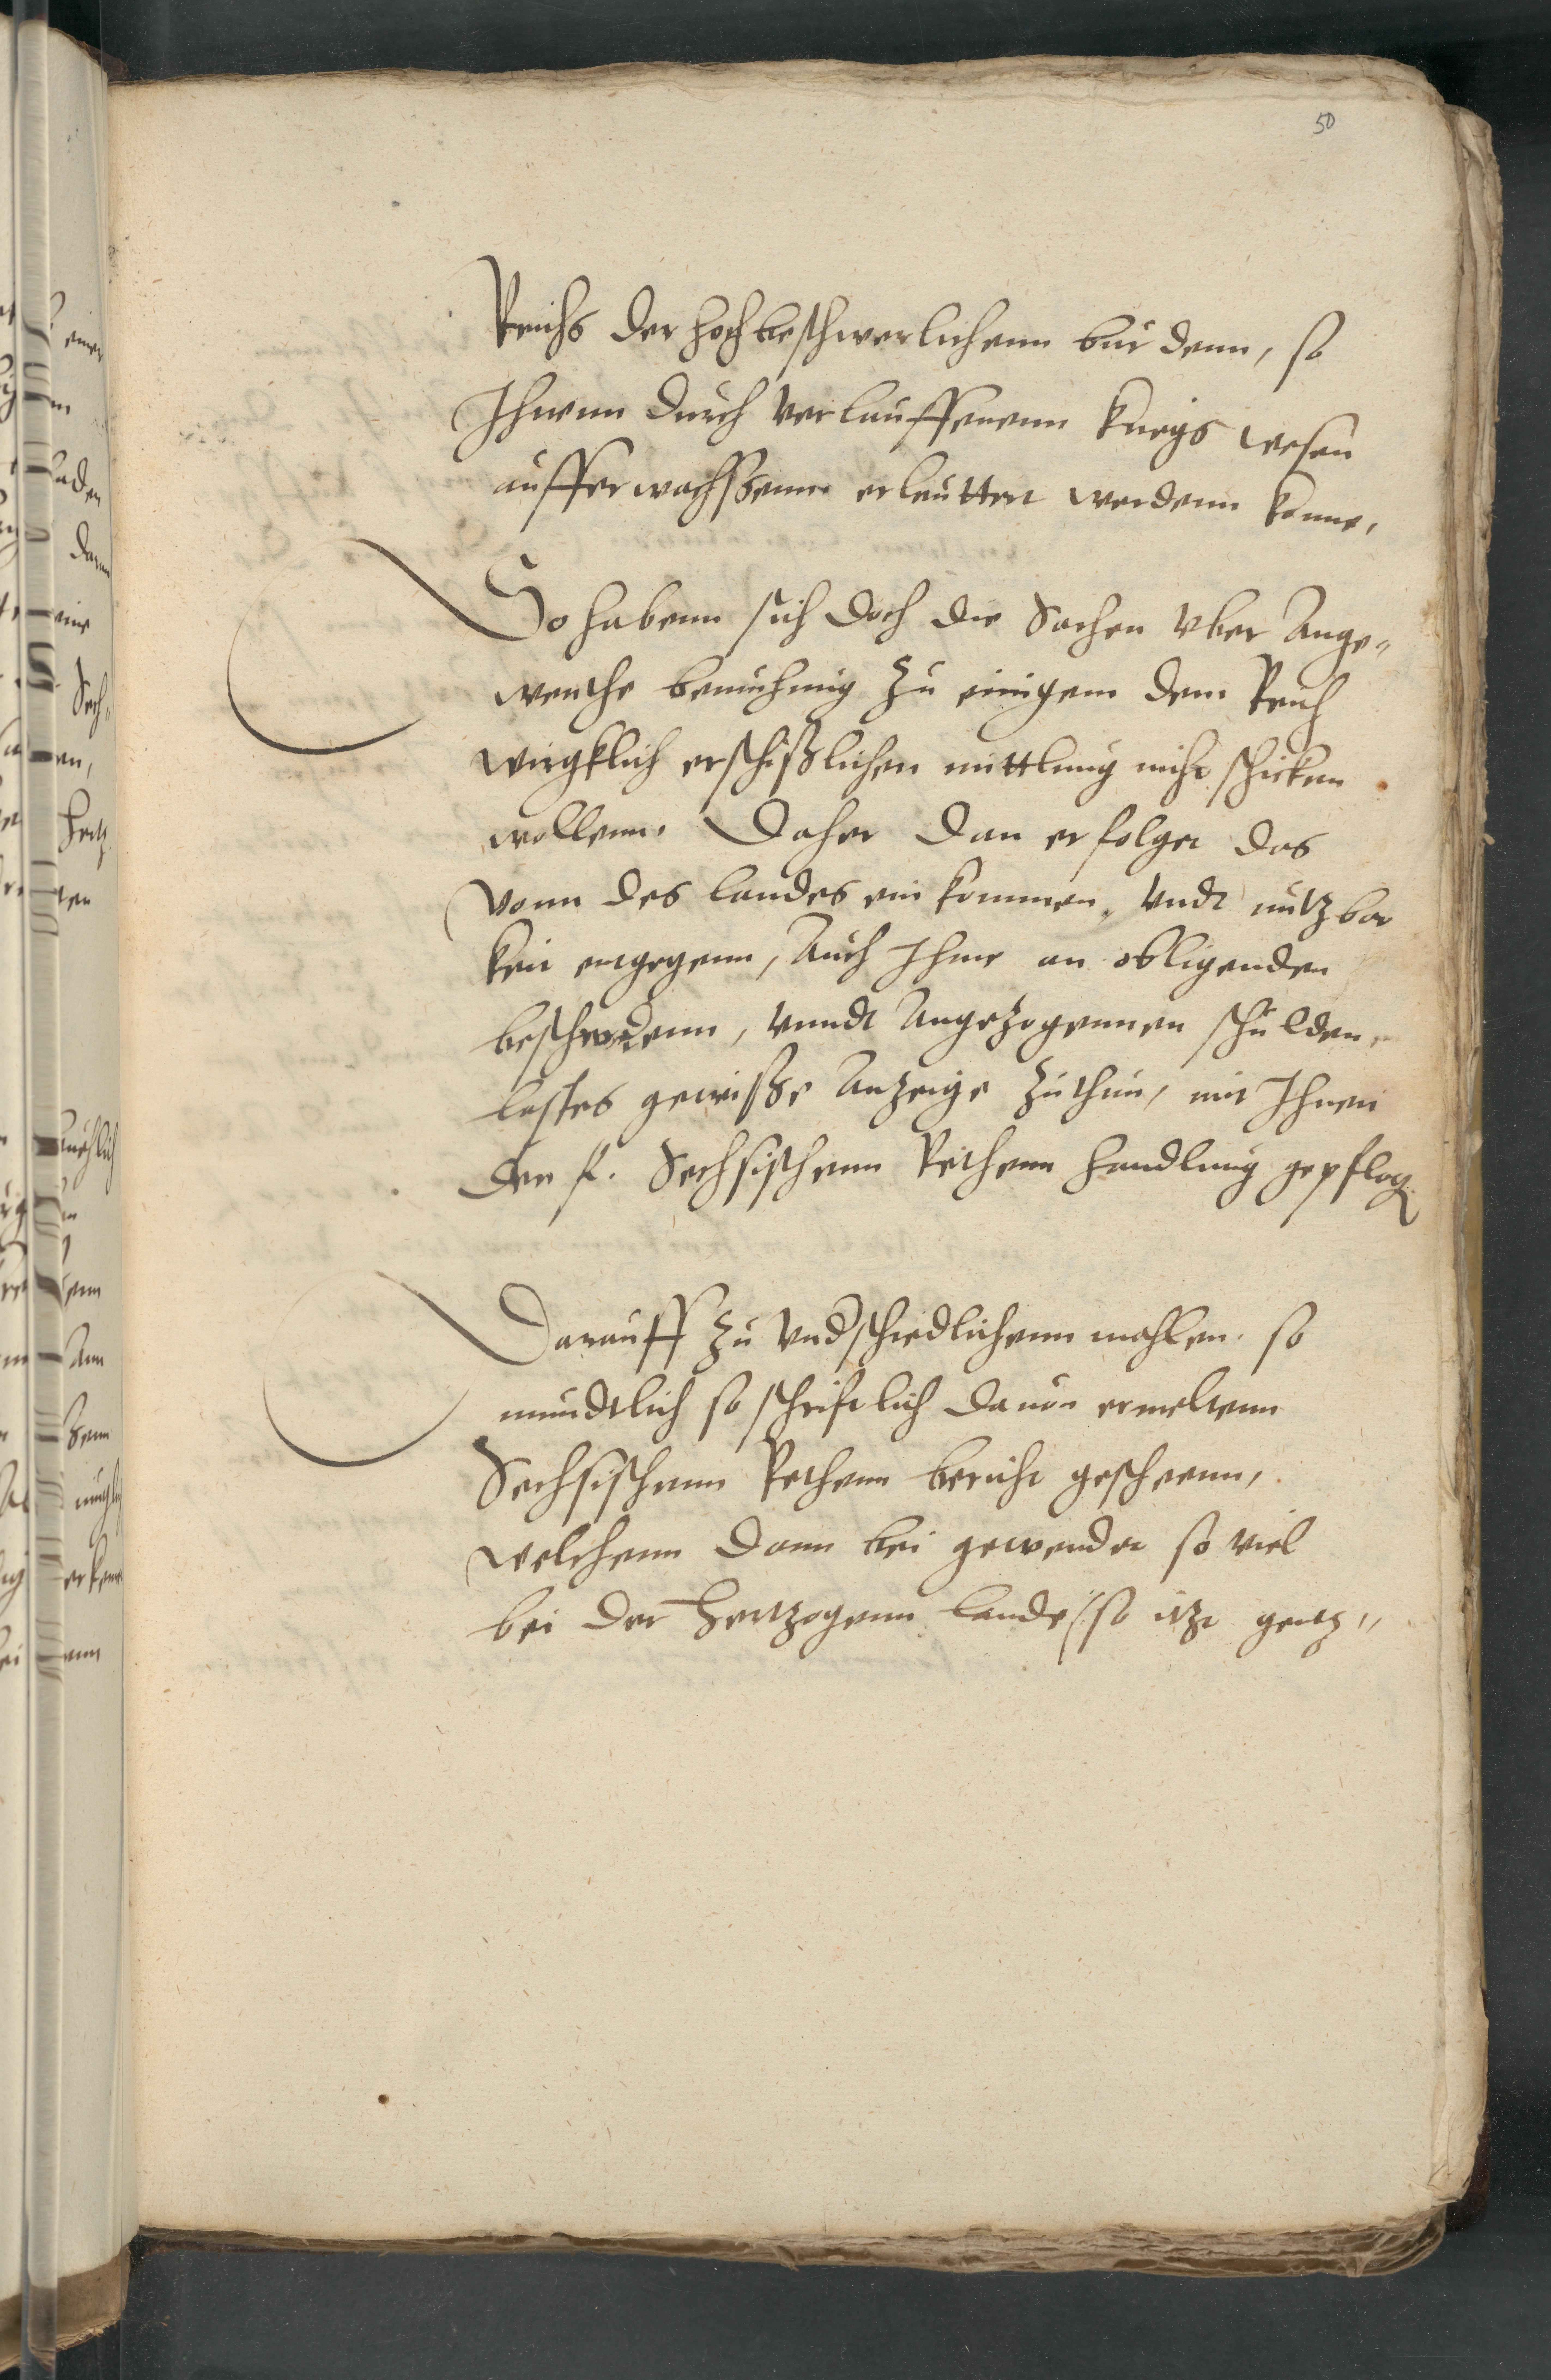 50
Reichs der hochbeschwerlichenn burdenn, so
Ihnenn durch verlauffenenn kriegs wesen
aufferwachssenn erleuttert werdenn konne,
So habenn sich doch die Sachen vber Ange-
wentte bemuhung zu einigem dem Reich
wirgklich erschißlichen mittlung nicht schicken
wollenn. Daher dan erfolget das
vonn des landes ein kommen, vndt nutzbar
keit entgegenn, Auch Ihme an obligenden
beschwerdenn, vnndt Angezogennen schulden
lastes gewisse Anzeige zuthun, mit Ihnen
den f. Sechsischenn Rethenn handlung gepflog
Darauff zu vnderschiedlichenn mahlen so
mundtlich so schriftlich dauon ermeltenn
Sechsischenn Rethenn bericht gescheenn,
welchenn dann bei gewendet so viel
bei der Hertzogenn lande so itzt gentz-